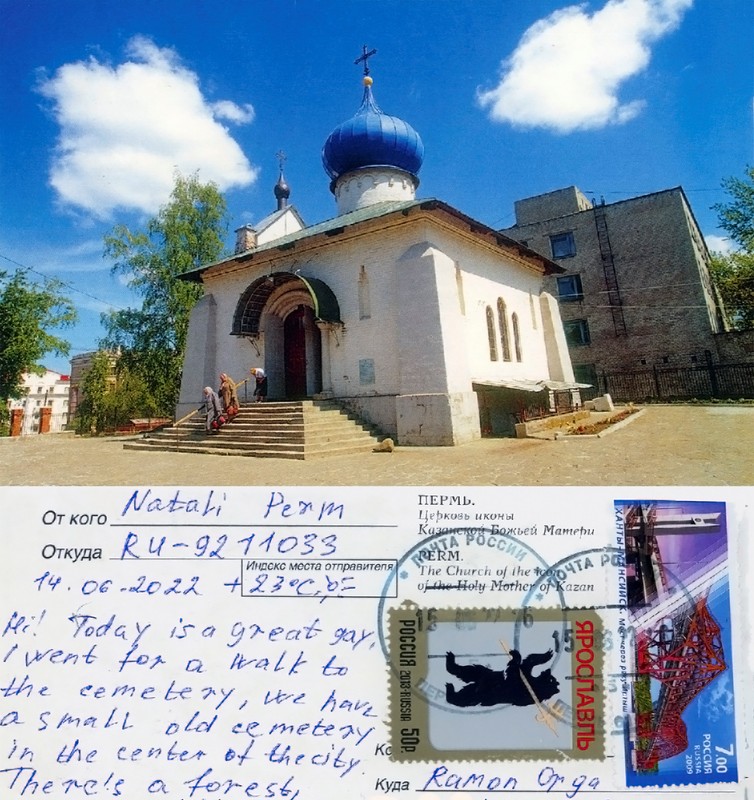 От кого Natali Perm
Откуда RU-9211033
Индекс места отправителя
14.06.2022 +23°C,
Hi! Today is a great gay,
I went for a walk to
the cemetery, we have
a small old cemetery
in the center of the city.
There's a forest,
ПЕРМЬ.
Церковь иконы
Казанской Божьей Матери
PERM.
The Church of the icon
of the Holy Mother of Kazan
ПОЧТА РОССИИ
ПОЧТА РОССИИ
РОССИЯ 2013·RUSSIA 50р.
ЯРОСЛАВЛЬ
ХАНТЫ-МАНСИЙСК. Мост через р.Иртыш
7.00
РОССИЯ
RUSSIA
2009
Куда Ramon Orga